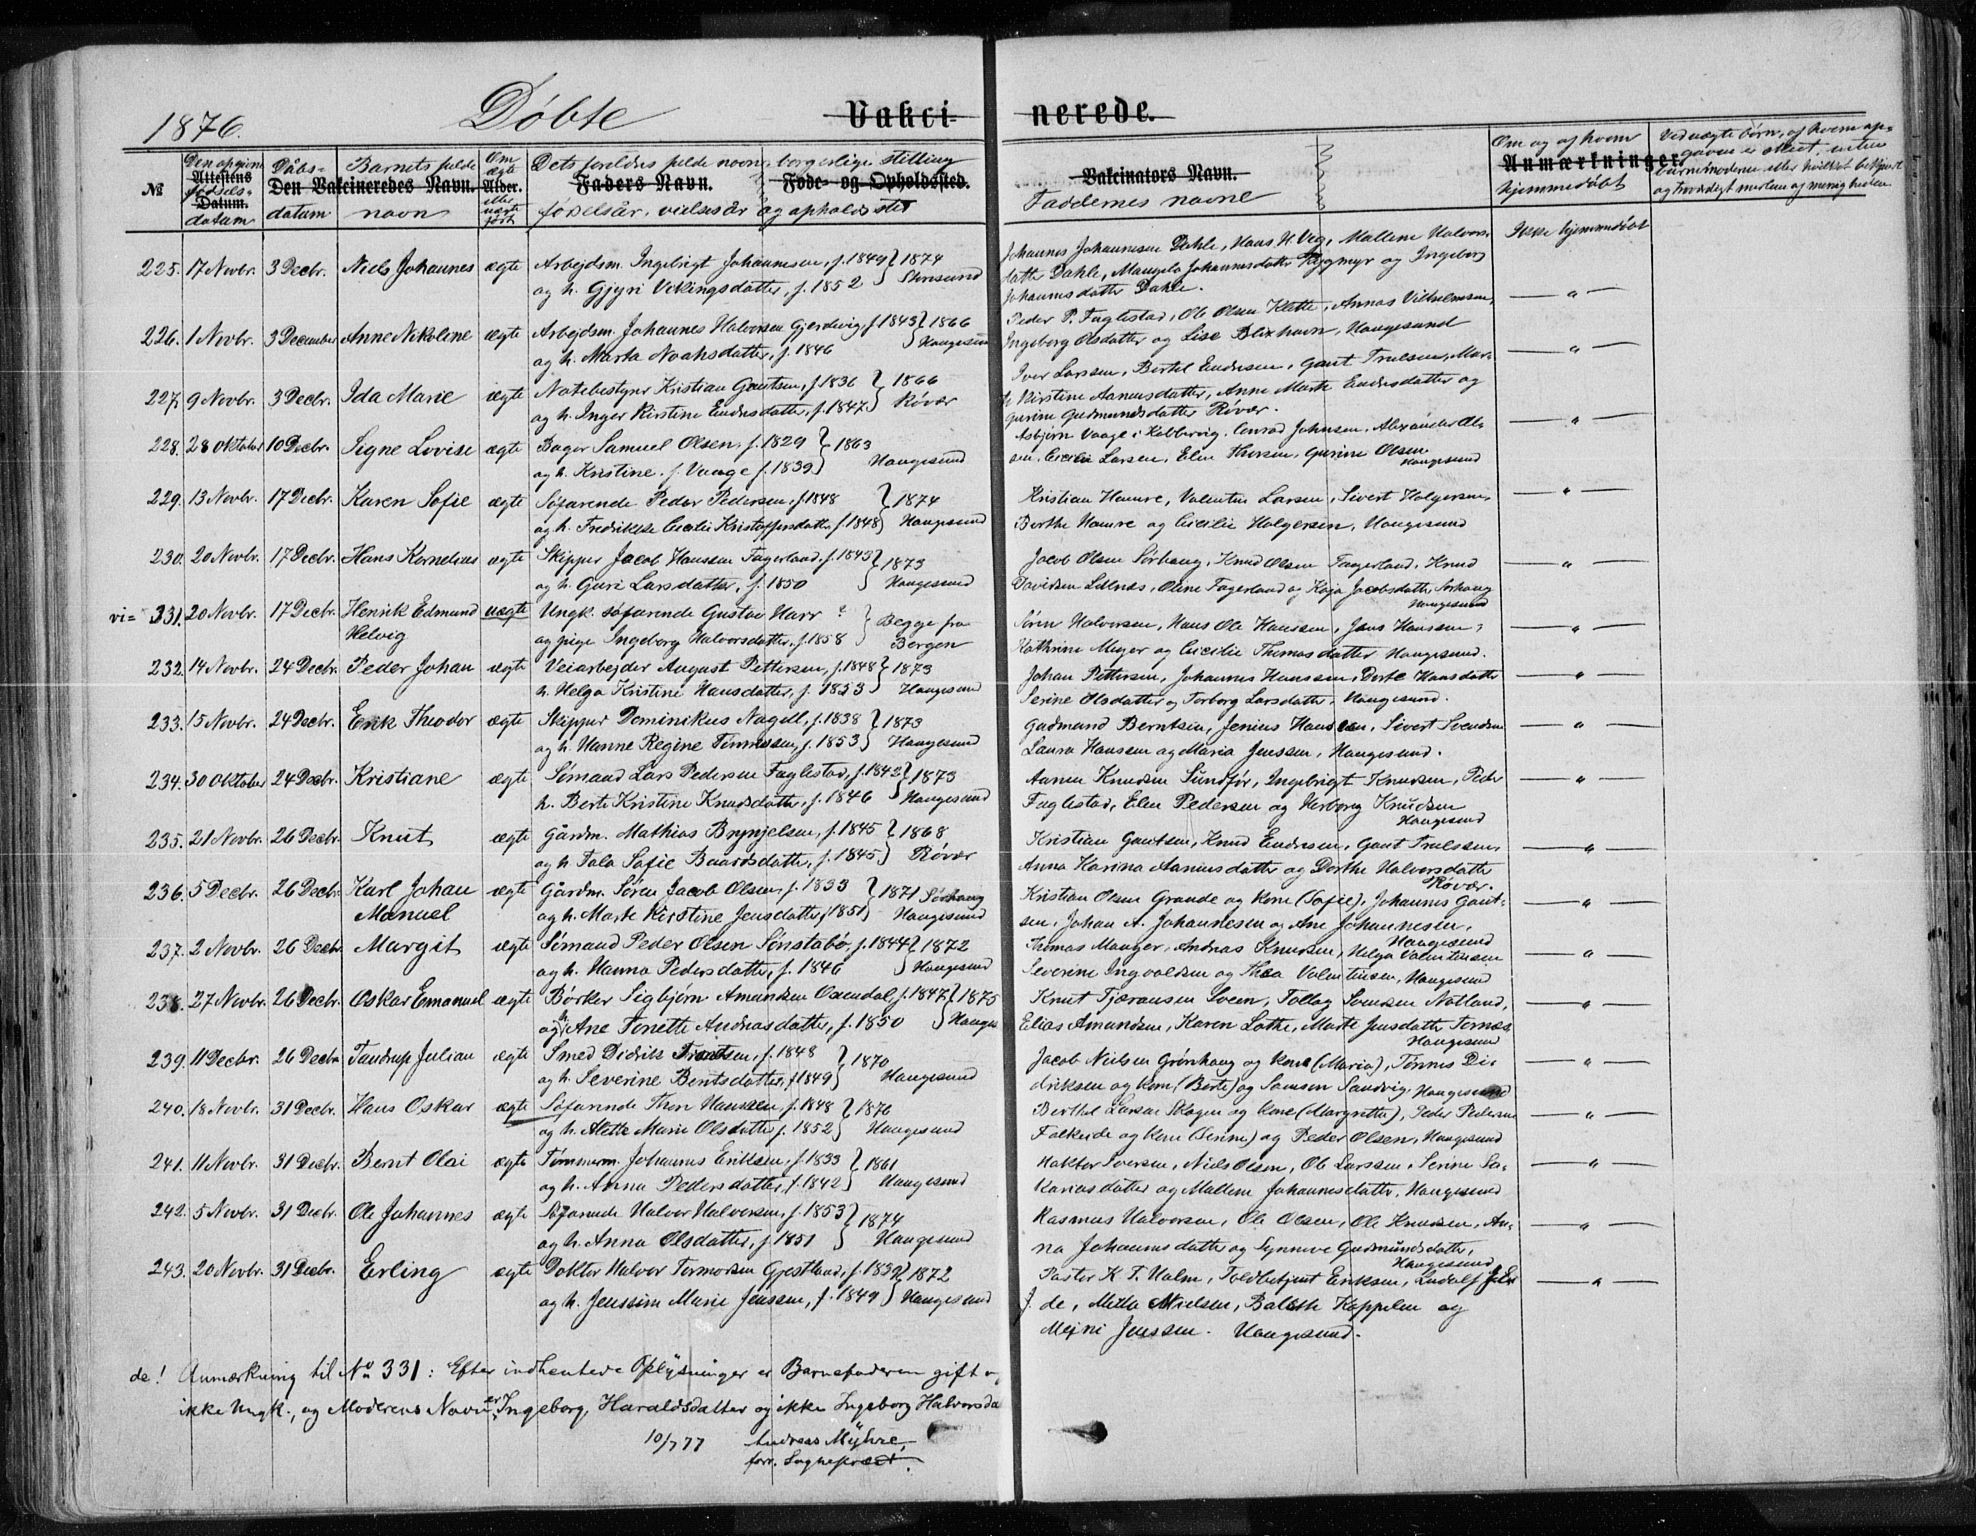 1876. Døbte Vakci- nerede.
№ Den opgivne Attestens fødsels- Datum. datum
Dåbs- datum Den Vakcineredes Navn. Barnets fulde navn
Om ægte Alder. eller uægte født
Dets forældres fulde navn, borgerlige stilling
Faders Navn. Føde- og Opholdssted.
fødselsår, vielsesår og opholdssted
Vakcinators Navn.
Faddernes navne
Om og af hvem Anmærkninger. hjemmedøbt
Ved uægte børn, af hvem op-
gaven er skeet, enten
barnemoderen eller hvilket bekjendt
og troværdigt medlem af menigheden
225. 17 Novbr. 3 Decbr. Niels Johannes ægte Arbejdsm. Ingebrigt Johannesen, f. 1849 } 1874
og h. Gjyri Vikingsdatter, f. 1852
Johannes Johannesen Dahle, Hans H. Veg, Mallene Halvors-
datter Dahle, Johannesdatter Rygmyr og Ingeborg
Johannesdatter Dahle.
Ikke hjemmedøbt
226. 1 Novbr. 3 December Anne Nikoline ægte Arbejdsm. Johannes Halvorsen Gjerdevig, f. 1843 } 1866
og h. Marta Noahsdatter, f. 1846 Haugesund
Peder P. Fuglestad, Ole Olsen Klette, Annas Vilhelmsen,
Ingeborg Olsdatter og Lise Blixhavn, Haugesund
— " —
227. 9 Novbr. 3 Decbr. Ida Marie ægte Notebestyrer Kristian Gautsen, f. 1836 } 1866
og h. Inger Kirstine Endresdatter, f. 1847 Røvær
Iver Larsen, Bertel Endresen, Gaut Truelsen, Mar-
Kirstine Aanensdatter, Anne Marte Endresdatter og
Gurine Gudmundsdatter Røvær.
— " —
228. 28 Oktober 10 Decbr. Signe Lovise ægte Bager Samuel Olsen, f. 1829 } 1863
og h. Kristine f. Vaage f. 1839 Haugesund
Asbjørn Vaage i Kobbervig, Conrad Johnsen, Alexander Ol-
sen, Cecilie Larsen, Elen Thorsen, Gurine Olsen
Haugesund
— " —
229. 13 Novbr. 17 Decbr. Karen Sofie ægte Søfarende Peder Pedersen, f. 1848 } 1874
og h. Fredrikke Cecilie Kristoffersdatter, f. 1848 Haugesund
Kristian Hamre, Valentin Larsen, Sivert Holgersen,
Berthe Hamre og Cicilie Holgersen, Haugesund
— " —
230. 20 Novbr. 17 Decbr. Hans Kornelius ægte Skipper Jacob Hansen Fagerland, f. 1843 } 1873
og h. Guri Larsdatter, f. 1850 Haugesund
Jacob Olsen Sørhaug, Knud Olsen Fagerland, Knud
Davidsen Lillenæs, Oline Fagerland og Kaja Jacobsdatter Sørhaug
Haugesund
— " —
vi= 331. 20 Novbr. 17 Decbr. Henrik Edmund uægte Ungk. søfarende Gustav Harr ? } Begge fra
Helvig og pige Ingeborg Halvorsdatter, f. 1858 Bergen
Sören Halvorsen, Hans Ole Hanssen, Jens Hanssen,
Kathrine Meyer og Cicilie Thomasdatter Haugesund.
— " —
232. 14 Novbr. 24 Decbr. Peder Johan ægte Veiarbejder August Pettersen, f. 1848 } 1873
h. Helga Kristine Hansdatter, f. 1853 Haugesund
Johan Pettersen, Johannes Hanssen, Dorte Hansdatter
Serine Olsdatter og Torborg Larsdatter, Haugesund.
— " —
233. 15 Novbr. 24 Decbr. Erik Theodor ægte Skipper Dominikus Nagell, f. 1838 } 1873
og h. Hanne Regine Tønnessen, f. 1853 Haugesund
Gudmund Berntsen, Jenius Hanssen, Sivert Svendsen
Laura Hanssen og Maria Jenssen, Haugesund.
— " —
234. 30 Oktober 24 Decbr. Kristiane ægte Sømand Lars Pedersen Fuglestad, f. 1842 } 1873
h. Berte Kristine Knudsdatter, f. 1846 Haugesund
Aanen Knudsen Sundfør, Ingebrigt Knudsen, Peder
Fuglestad, Elen Pedersen og Herborg Knudsen
Haugesund
— " —
235. 21 Novbr. 26 Decbr. Knut ægte Gårdm. Mathias Brynjelsen, f. 1845 } 1868
og h. Tala Sofie Baardsdatter, f. 1845 Røvær
Kristian Gautsen, Knud Endresen, Gaut Truelssen,
Anna Karina Aanensdatter og Dorthe Halvorsdatter
Røvær.
— " —
236. 5 Decbr. 26 Decbr. Karl Johan ægte Gårdm. Søren Jacob Olsen, f. 1833 } 1871 Sørhaug
Manuel og h. Marte Kirstine Jensdatter, f. 1851 Haugesund
Kristian Olsen Grande og kone (Sofie), Johannes Gaut-
sen, Johan A. Johannesen og Ane Johannesen,
Haugesund
— " —
237. 2 Novbr. 26 Decbr. Margit ægte Sømand Peder Olsen Sønstabø, f. 1844 } 1872
og h. Hanna Pedersdatter, f. 1846 Haugesund
Thomas Mauger, Andreas Knudsen, Helga Valentinsen
Severine Ingvaldsen og Thea Valentinsen, Haugesund
— " —
238. 27 Novbr. 26 Decbr. Oskar Emanuel ægte Børker Sigbjørn Amundsen Oxendal, f. 1847 } 1875
og h. Ane Tonette Andreasdatter, f. 1850 Hauges
Knut Tjæransen Sveen, Tollag Svendsen Natland,
Elias Amundsen, Karen Lothe, Marte Jensdatter Tornæs
Haugesund
— " —
239. 11 Decbr. 26 Decbr. Taudrup Julian ægte Smed Didrik Trontsen, f. 1848 } 1870
og h. Severine Bentsdatter, f. 1849 Haugesund
Jacob Nielsen Grønhaug og kone (Maria), Tønnes Di-
driksen og kone (Berte) og Samson Sandvig, Haugesund
— " —
240. 18 Novbr. 31 Decbr. Hans Oskar ægte Søfarende Thor Hanssen, f. 1848 } 1876
og h. Alette Marie Olsdatter f. 1852 Haugesund
Berthel Larsen Skogen og kone (Margrethe), Peder Pedersen
Falkeide og kone (Serine) og Peder Olsen, Haugesund
— " —
241. 11 Novbr. 31 Decbr. Bernt Olai ægte Tømmerm. Johannes Eriksen, f. 1833 } 1861
og h. Anna Pedersdatter, f. 1842 Haugesund
Haktor Iversen, Niels Olsen, Ole Larssen, Serine Sa-
kariasdatter og Mallene Johannesdatter, Haugesund
— " —
242. 5 Novbr. 31 Decbr. Ole Johannes ægte Søfarende Halvor Halvorsen, f. 1853 } 1874
og h. Anna Olsdatter, f. 1851 Haugesund
Rasmus Halvorsen, Ole Olsen, Ole Knudsen, An-
na Johannesdatter og Synneve Gudmundsdatter,
Haugesund
— " —
243. 20 Novbr. 31 Decbr. Erling ægte Doktor Halvor Tormodsen Gjestland, f. 1839 } 1872
og h. Jenssine Marie Jenssen, f. 1849 Haugesund
Pastor K. T. Halm, Toldbetjent Eriksen, Ludolf
de, Meta Nielsen, Bolette Kappelen og
Mejni Jenssen. Haugesund.
— " —
de! Anmærkning til No 331: Efter indhentede Oplysninger er Barnefaderen gift og
ikke Ungk., og Moderens Navn er Ingeborg Haraldsdatter og ikke Ingeborg Halvorsda
10/7 77 Andreas Myhre,
forr. Sognepræst.